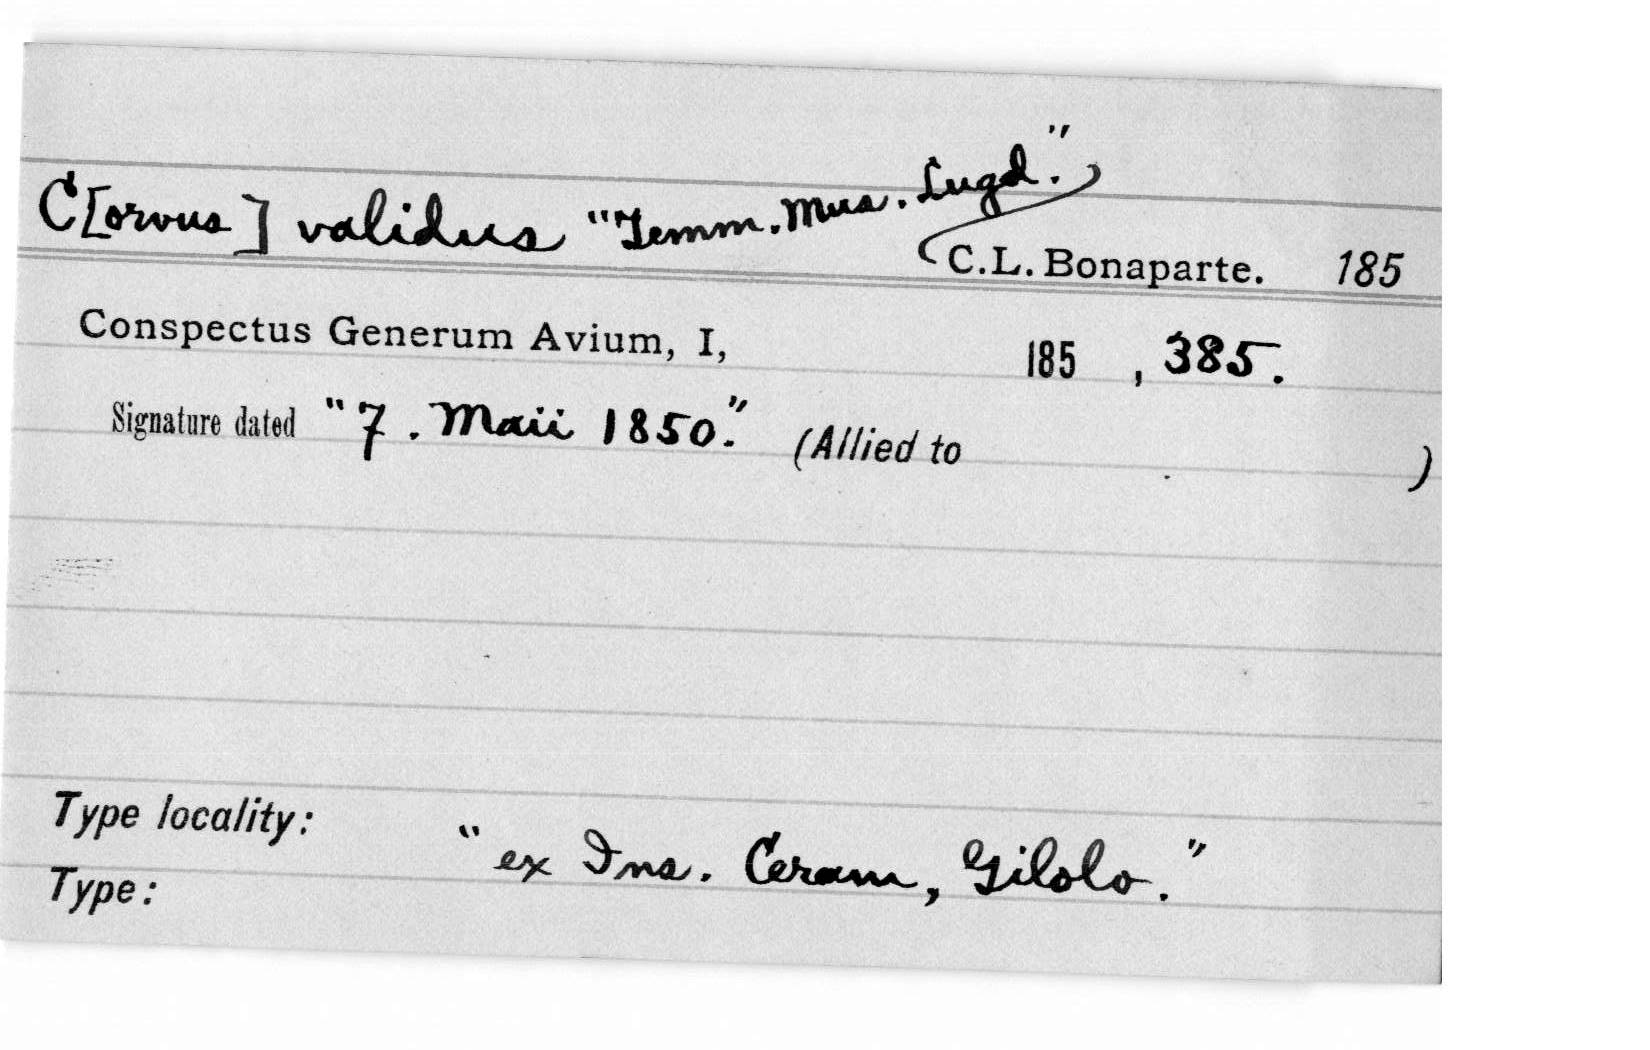 C[orvus] validus "Temm. Mus. Lugd."
C.L. Bonaparte. 185
Conspectus Generum Avium, I, 185 , 385.
Signature dated "7. Maii 1850." (Allied to )
Type locality: "ex Ins. Ceram, Gilolo."
Type: